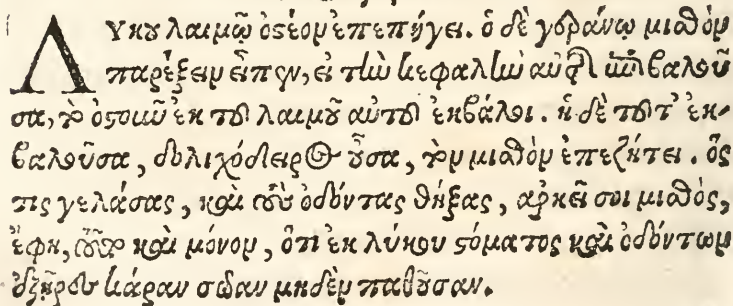 ΛΥκου λαιμῷ ὀστέον ἐπεπήγει. ὁ δὲ γεράνῳ μισθὸν
παρέξειν εἶπεν, εἰ τὴν κεφαλὴν αὐτῆς ἐπιβαλοῦ
σα, τὸ ὀστοῦν ἐκ τοῦ λαιμοῦ αὐτοῦ ἐκβάλοι. ἡ δὲ τοῦτ' ἐκ-
βαλοῦσα, δολιχόδειρος οὖσα, τὸν μισθὸν ἐπεζήτει. ὅς
τις γελάσας, καὶ τοὺς ὀδόντας θήξας, ἀρκεῖ σοι μισθὸς,
ἔφη, τοῦτο καὶ μόνον, ὅτι ἐκ λύκου στόματος καὶ ὀδόντων
κάραν σώαν μηδὲν παθοῦσαν.